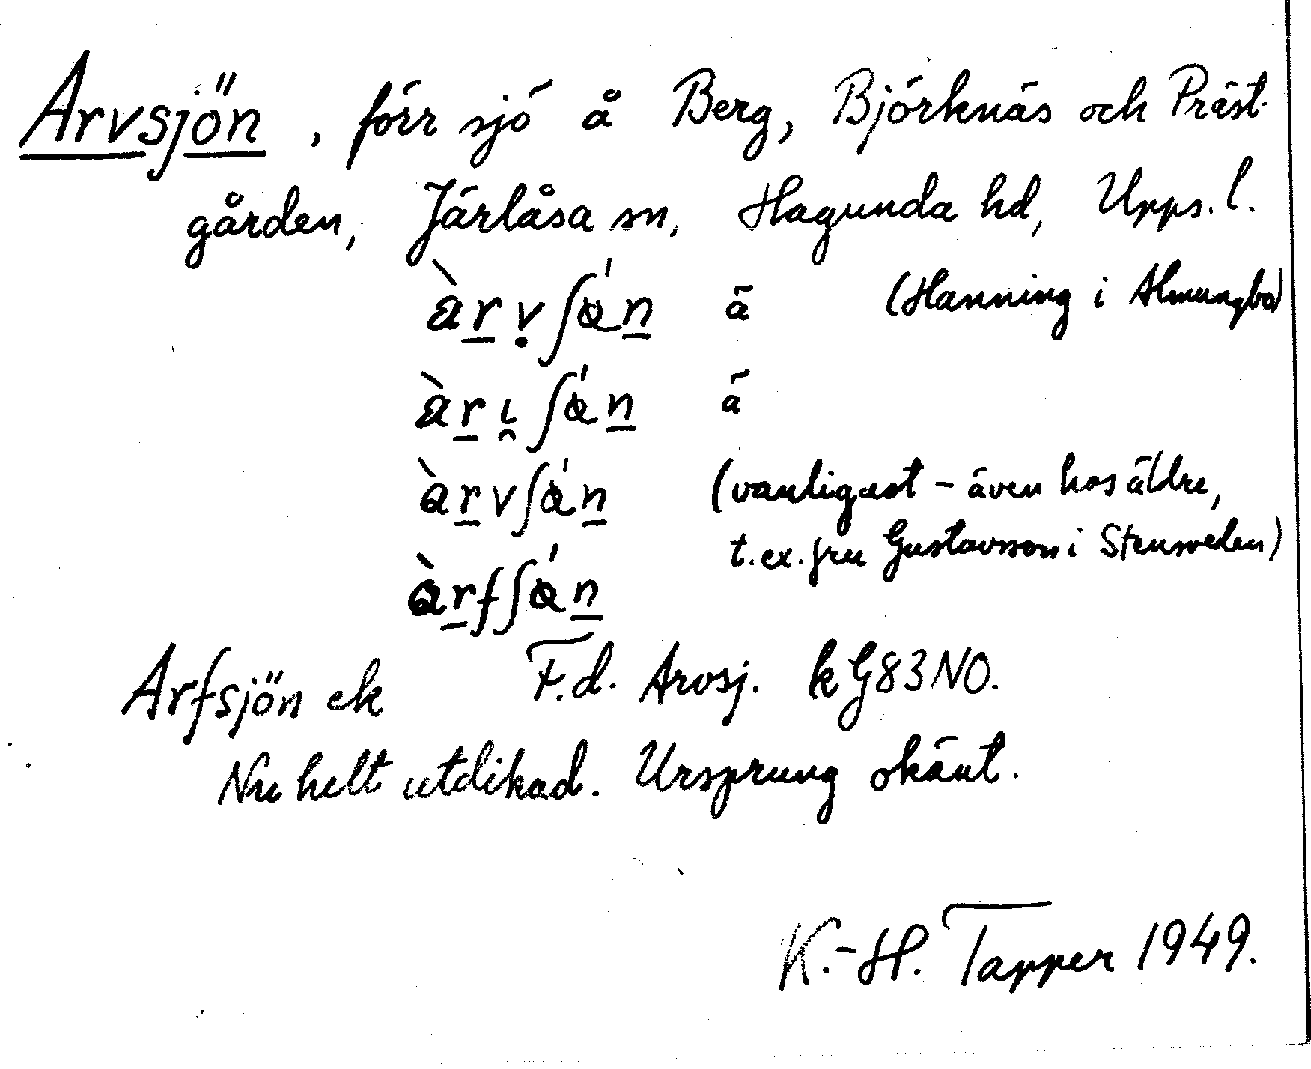 Arvsjön, förr sjö å Berg, Björknäs och Präst-
gården, Järlåsa sn, Hagunda hd, Upps. l.
àrvʃǿn ä (Hanning i Almungbo)
àrɩʃǿn ä
àrvʃǿn (vanligast – även hos äldre,
t.ex. fru Gustavsson i Stensveden)
àrfʃǿn
Arfsjön ek F.d. Arvsj. k G83NO.
Nu helt utdikad. Ursprung okänt.
K.-H. Tapper 1949.